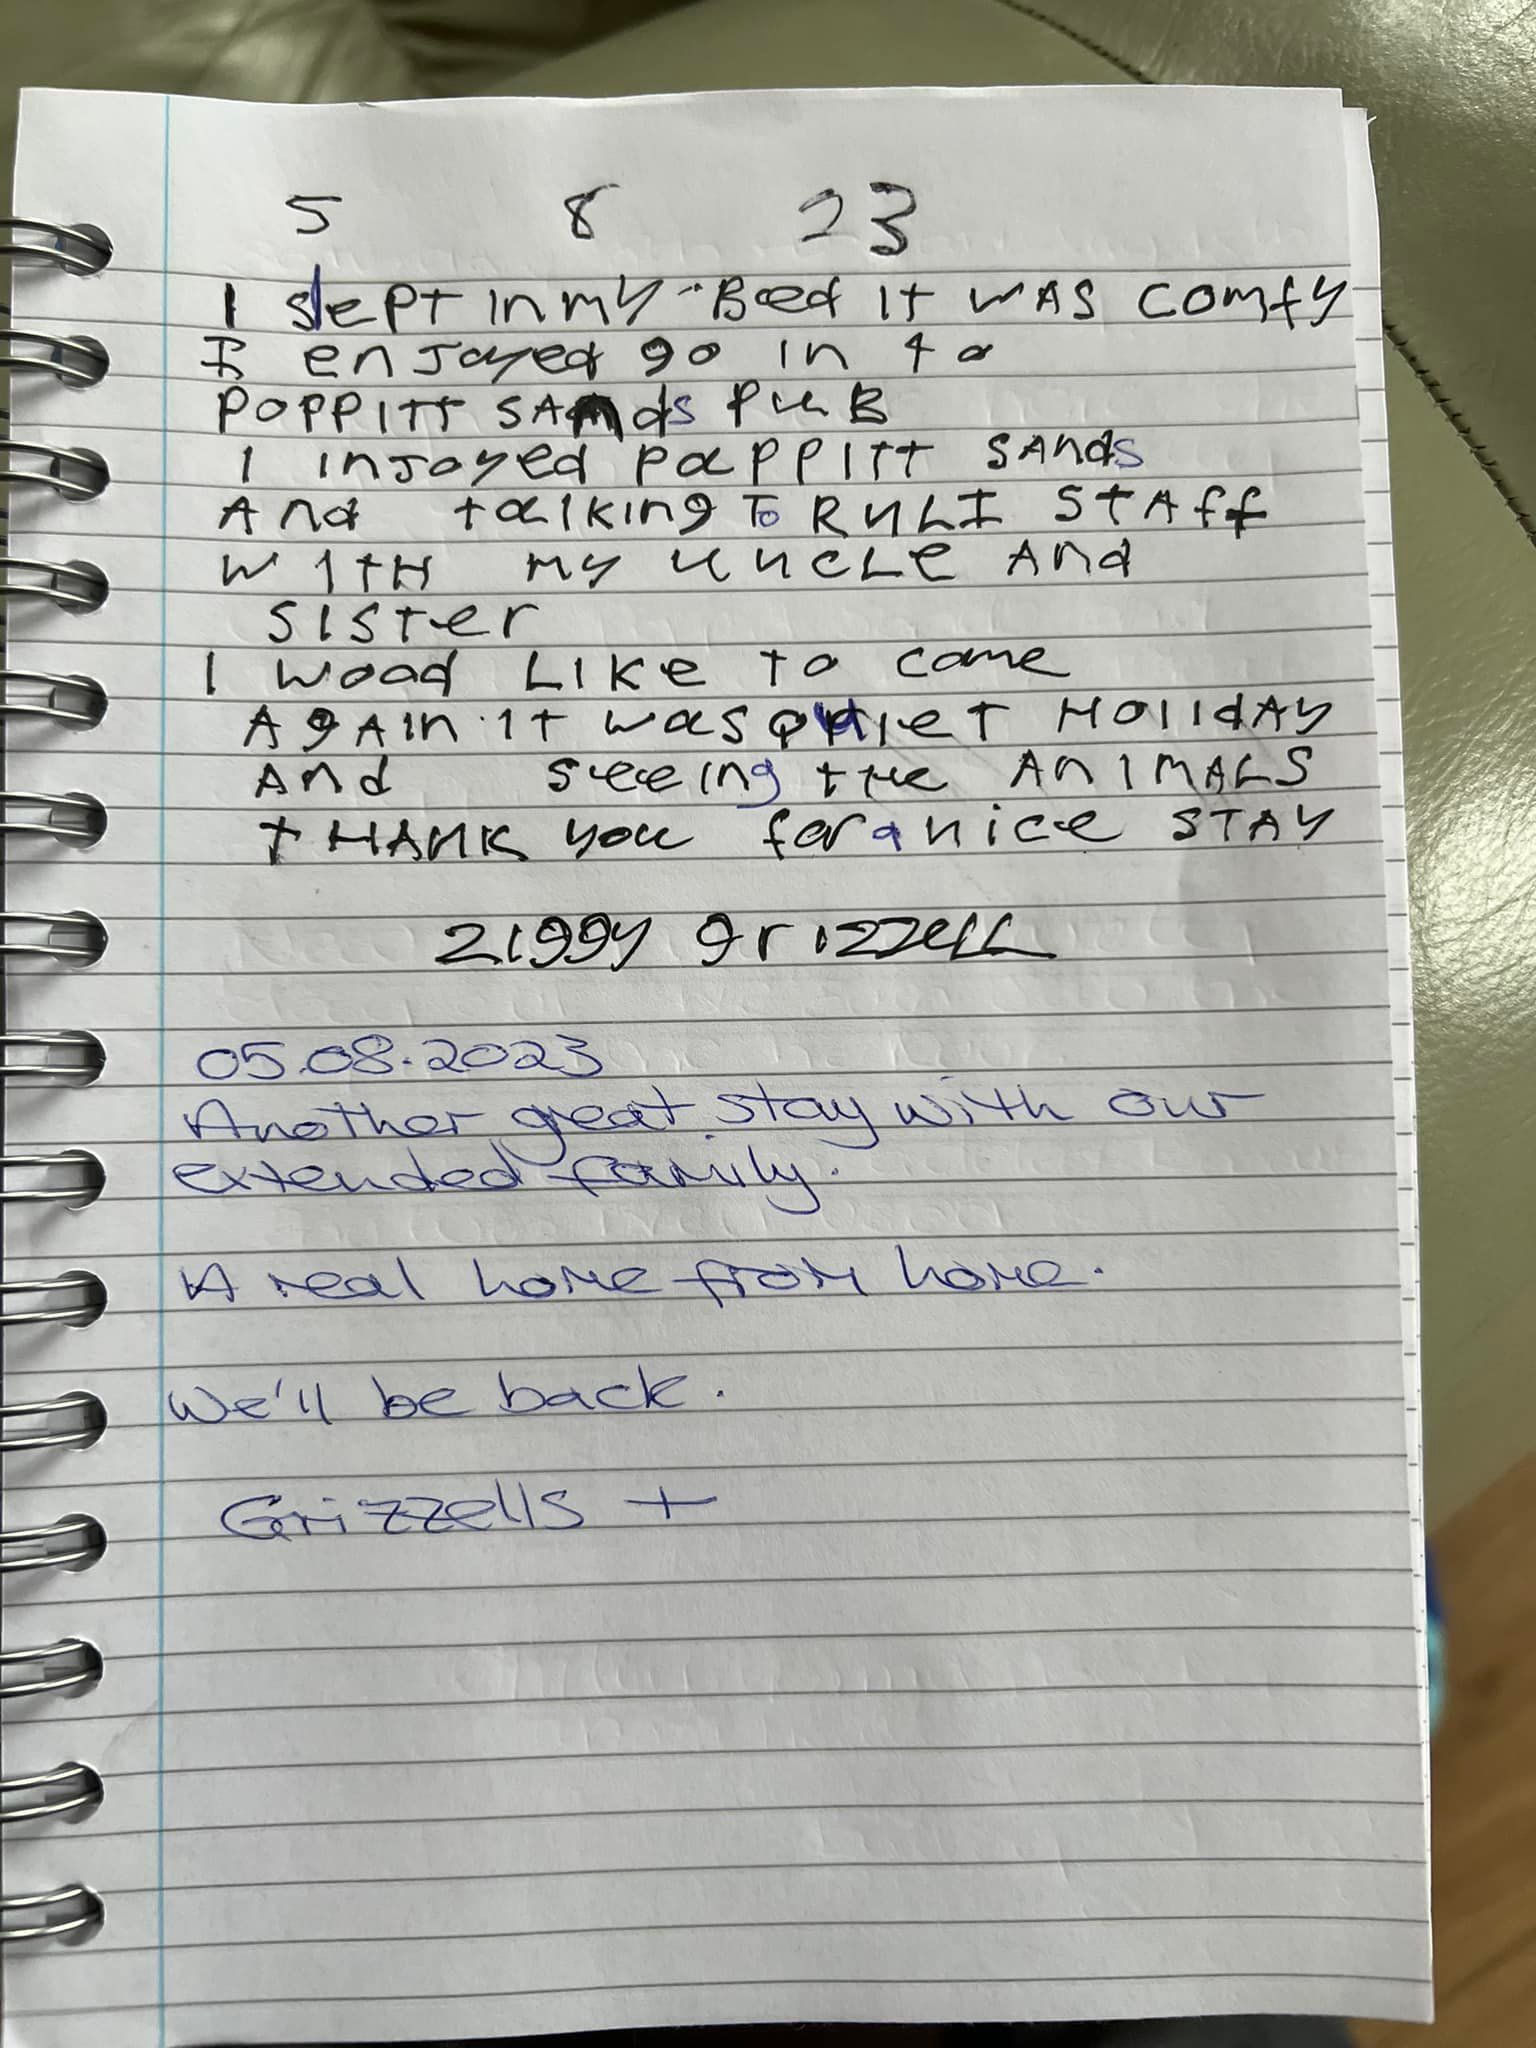 5 8 23
I slept in my Bed it WAS comfy
I enjoyed go in to
POPPITT SANds PuB
I INJoyed PaPPITT SANds
ANd talking To RULI STAff
WITH my uncle And
SISTer
I Wood LIKe To come
AgAin it was quiet Holiday
And seeing the ANIMALS
THANK you for a nice STAY
Ziggy grizzell
05.08.2023
Another great stay with our
extended family.
A real home from home.
We'll be back.
Grizzells +